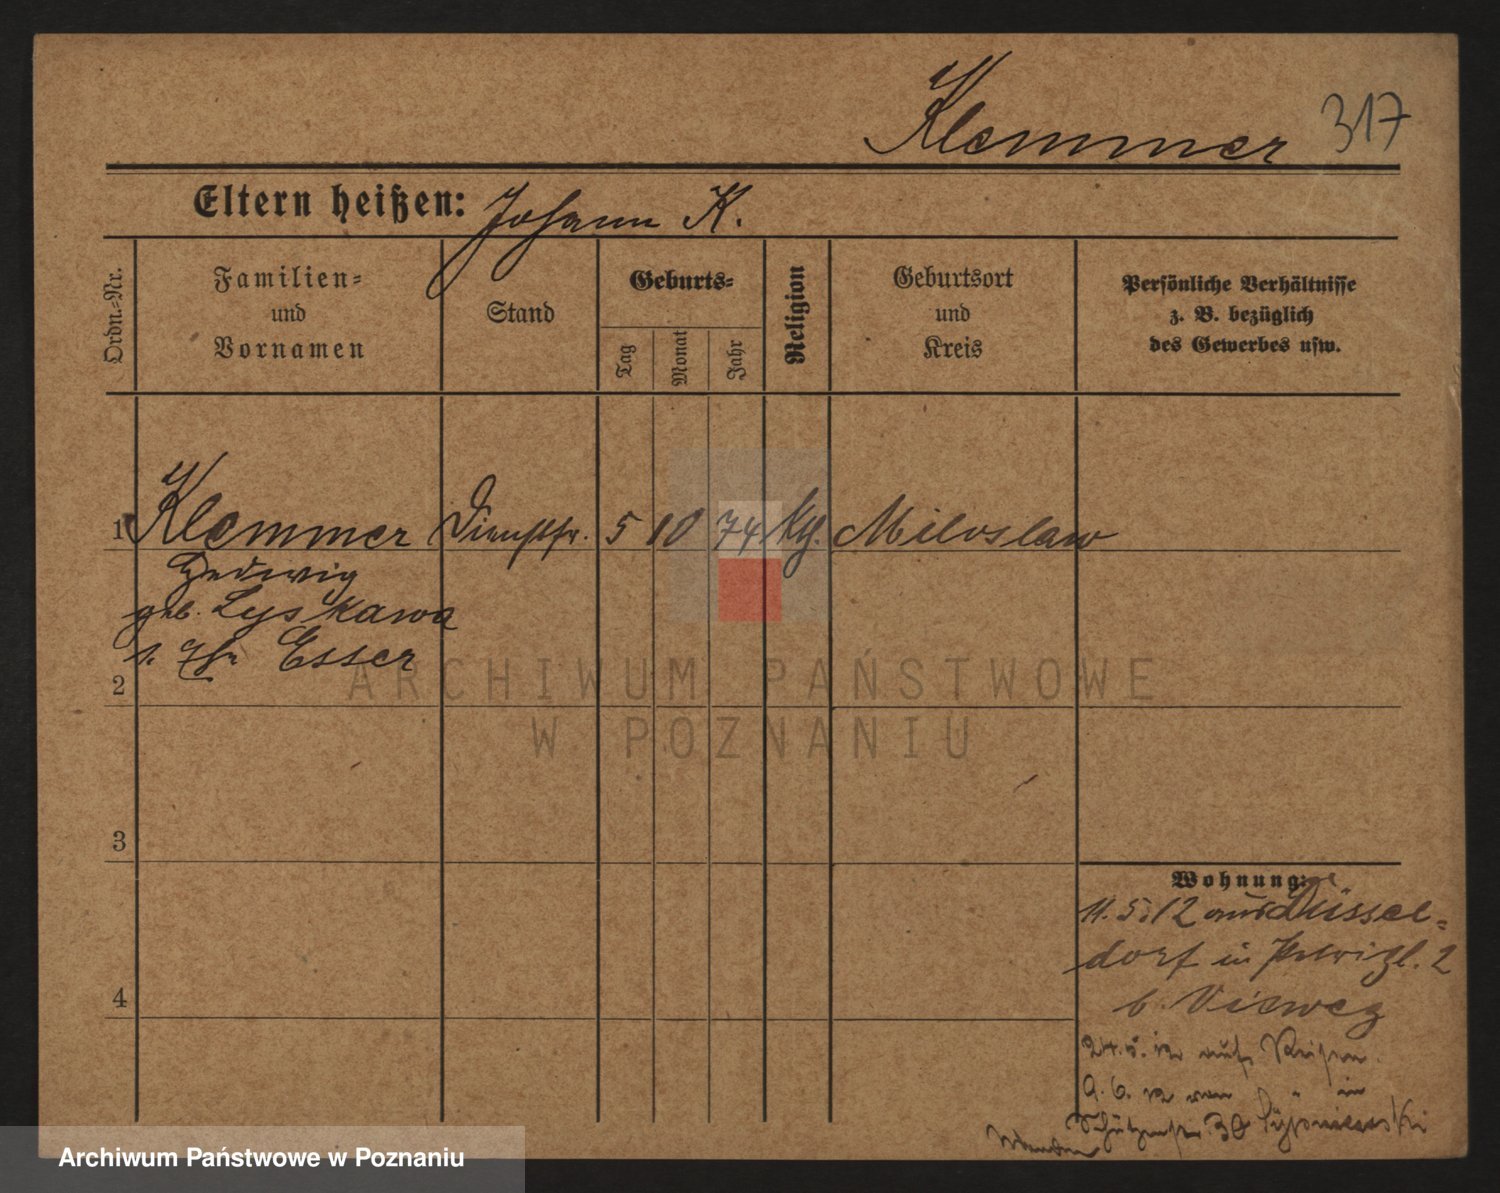 Klemmer 317
Eltern heißen: Johann K.
Ordn.=Nr.
Familien=
und
Vornamen
Stand
Geburts=
Tag
Monat
Jahr
Religion
Geburtsort
und
Kreis
Persönliche Verhältnisse
z. B. bezüglich
des Gewerbes usw.
1 Klemmer Dienstfr. 5 10 74 kth. Miloslaw
Hedwig
geb. Lyskawa
Esser
2
3
4
Wohnung:
11.5.12 aus Düssel=
dorf in 2
b. Vieweg
24.5.12 auf Reisen.
9.6.12 von " in
Schützenstr. 30
Wenden
ARCHIWUM PAŃSTWOWE
W POZNANIU
Archiwum Państwowe w Poznaniu